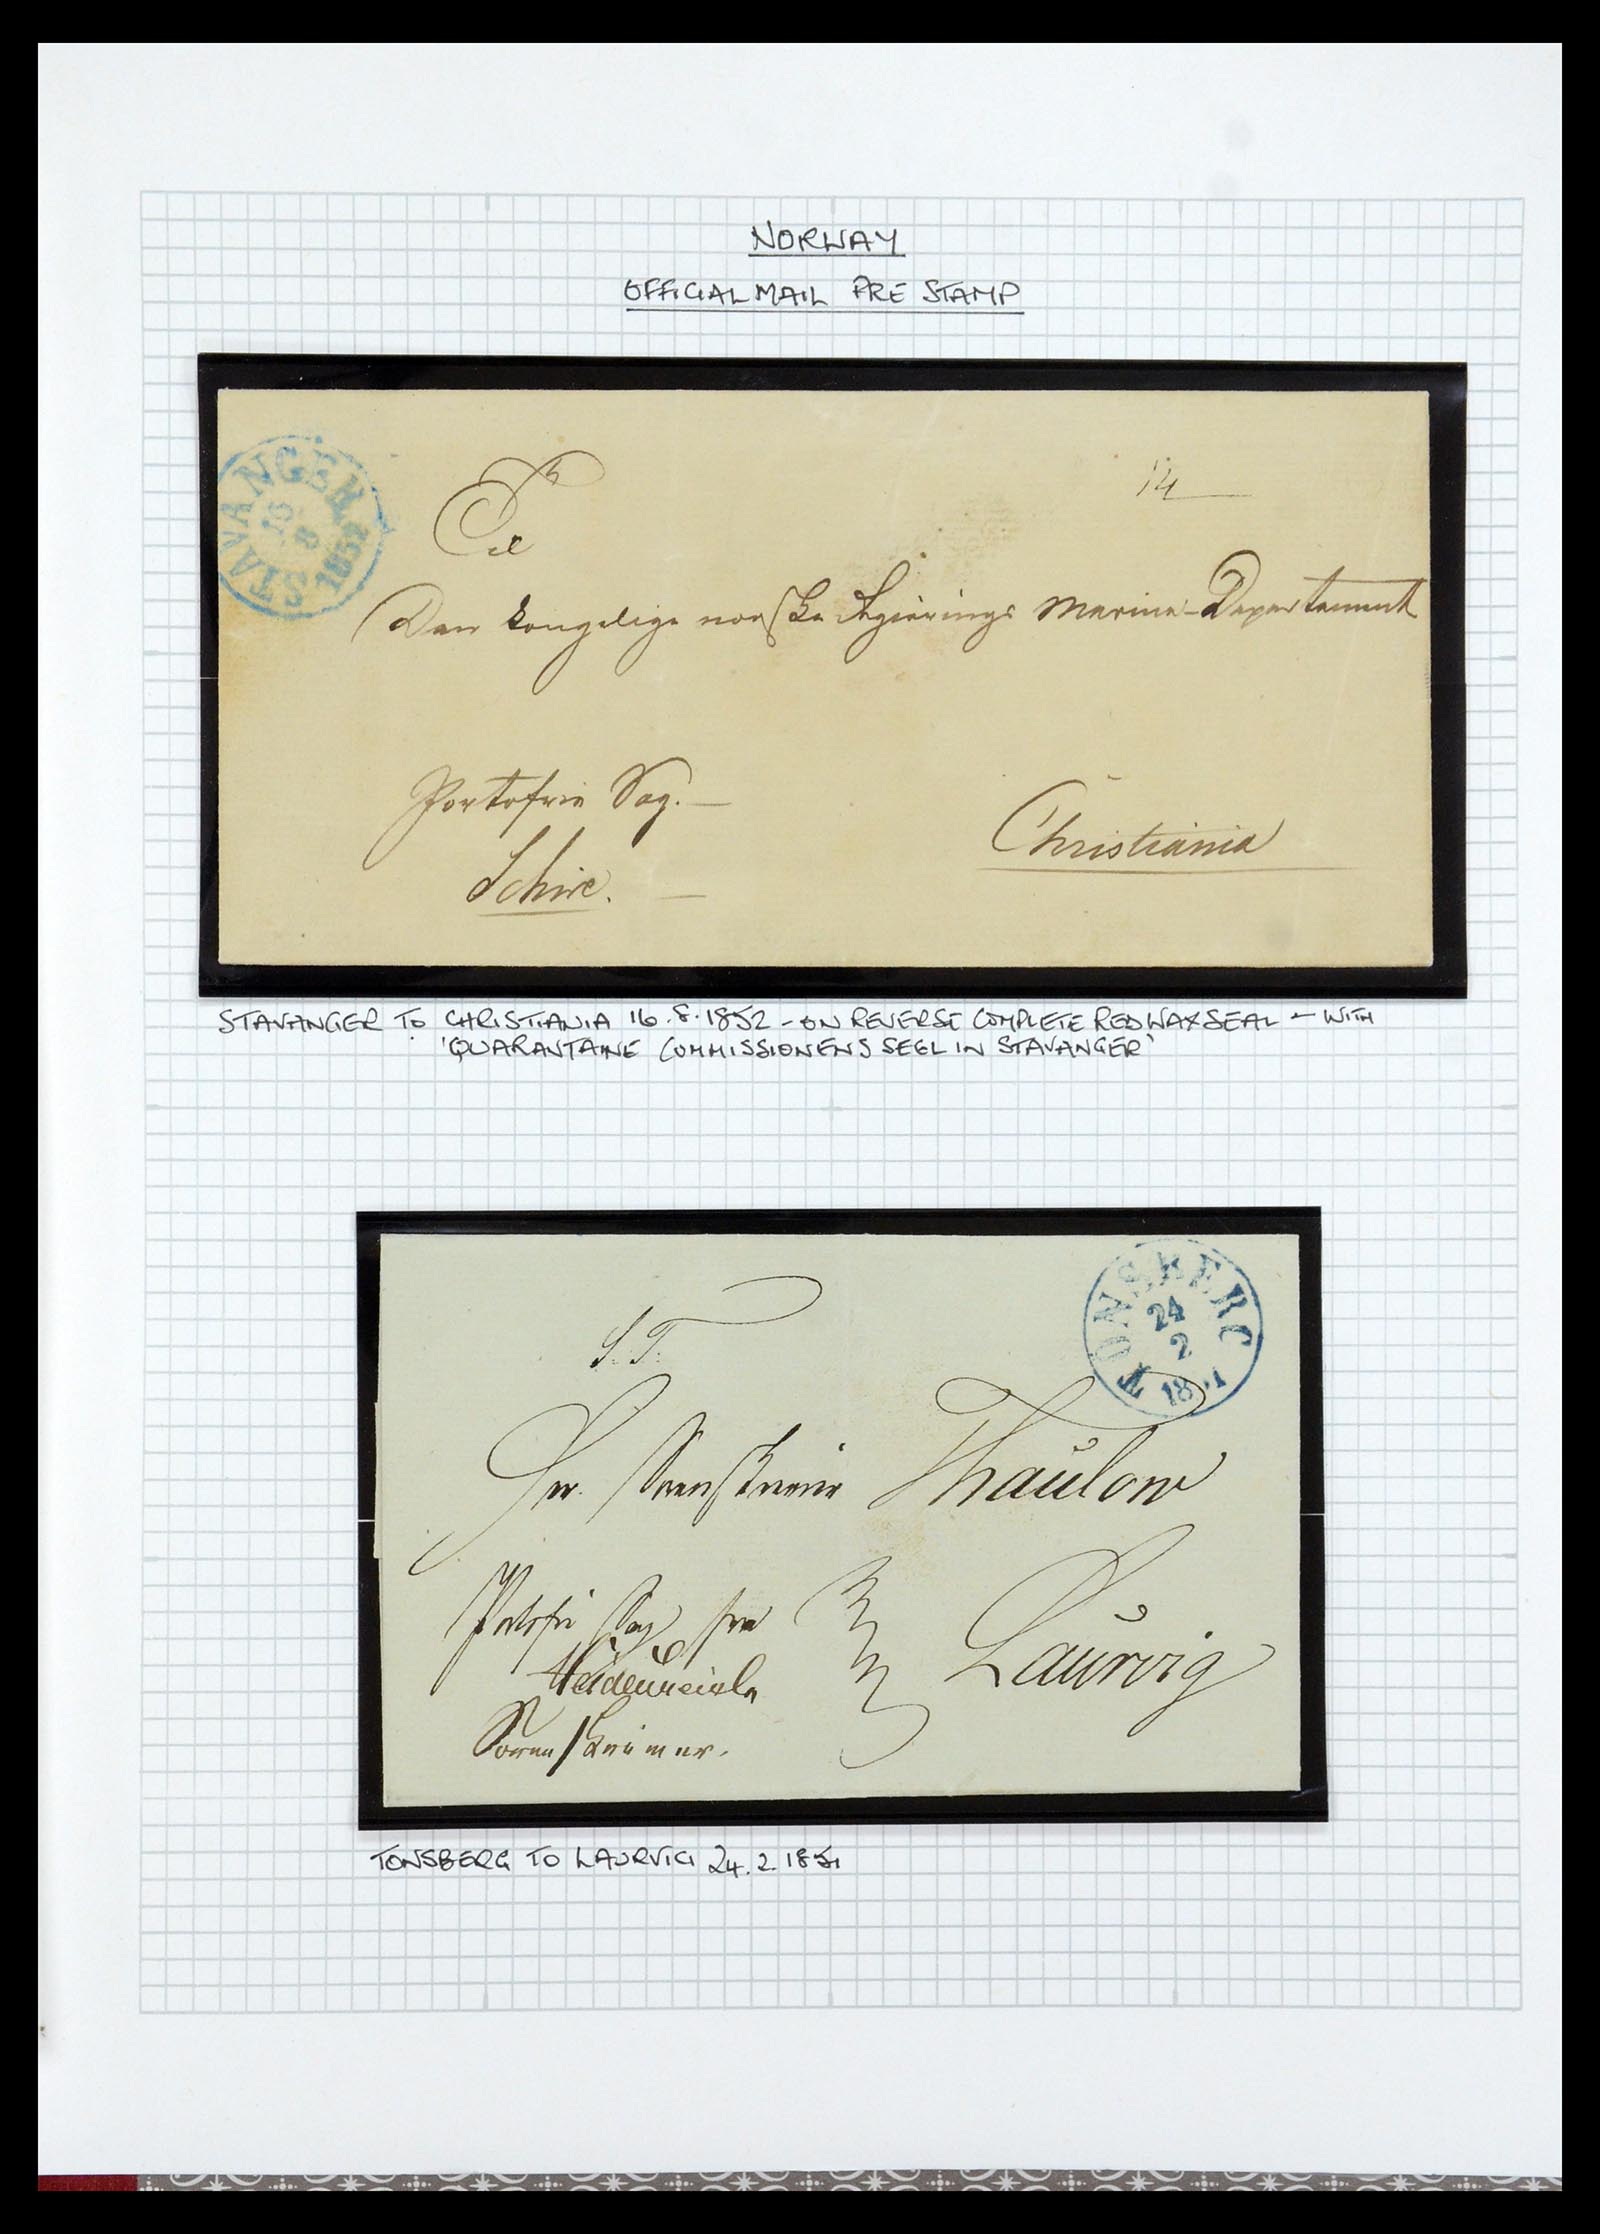 NORWAY
OFFICIAL MAIL PRE STAMP
STAVANGER
16
8
1852
14
Til
Den kongelige norske Regjerings Marine-Departement
Portofrie Sag.
Schive.
Christiania
STAVANGER TO CHRISTIANIA 16.8.1852 - ON REVERSE COMPLETE RED WAX SEAL - WITH
'QUARANTAINE COMMISSIONENS SEGL IN STAVANGER'
TÖNSBERG
24
2
S. T.
Hr. Sorenskriver Thaulow
Portofri Sag fra
Laurvig
Sorenskriver.
TONSBERG TO LAURVIG 24.2.1851